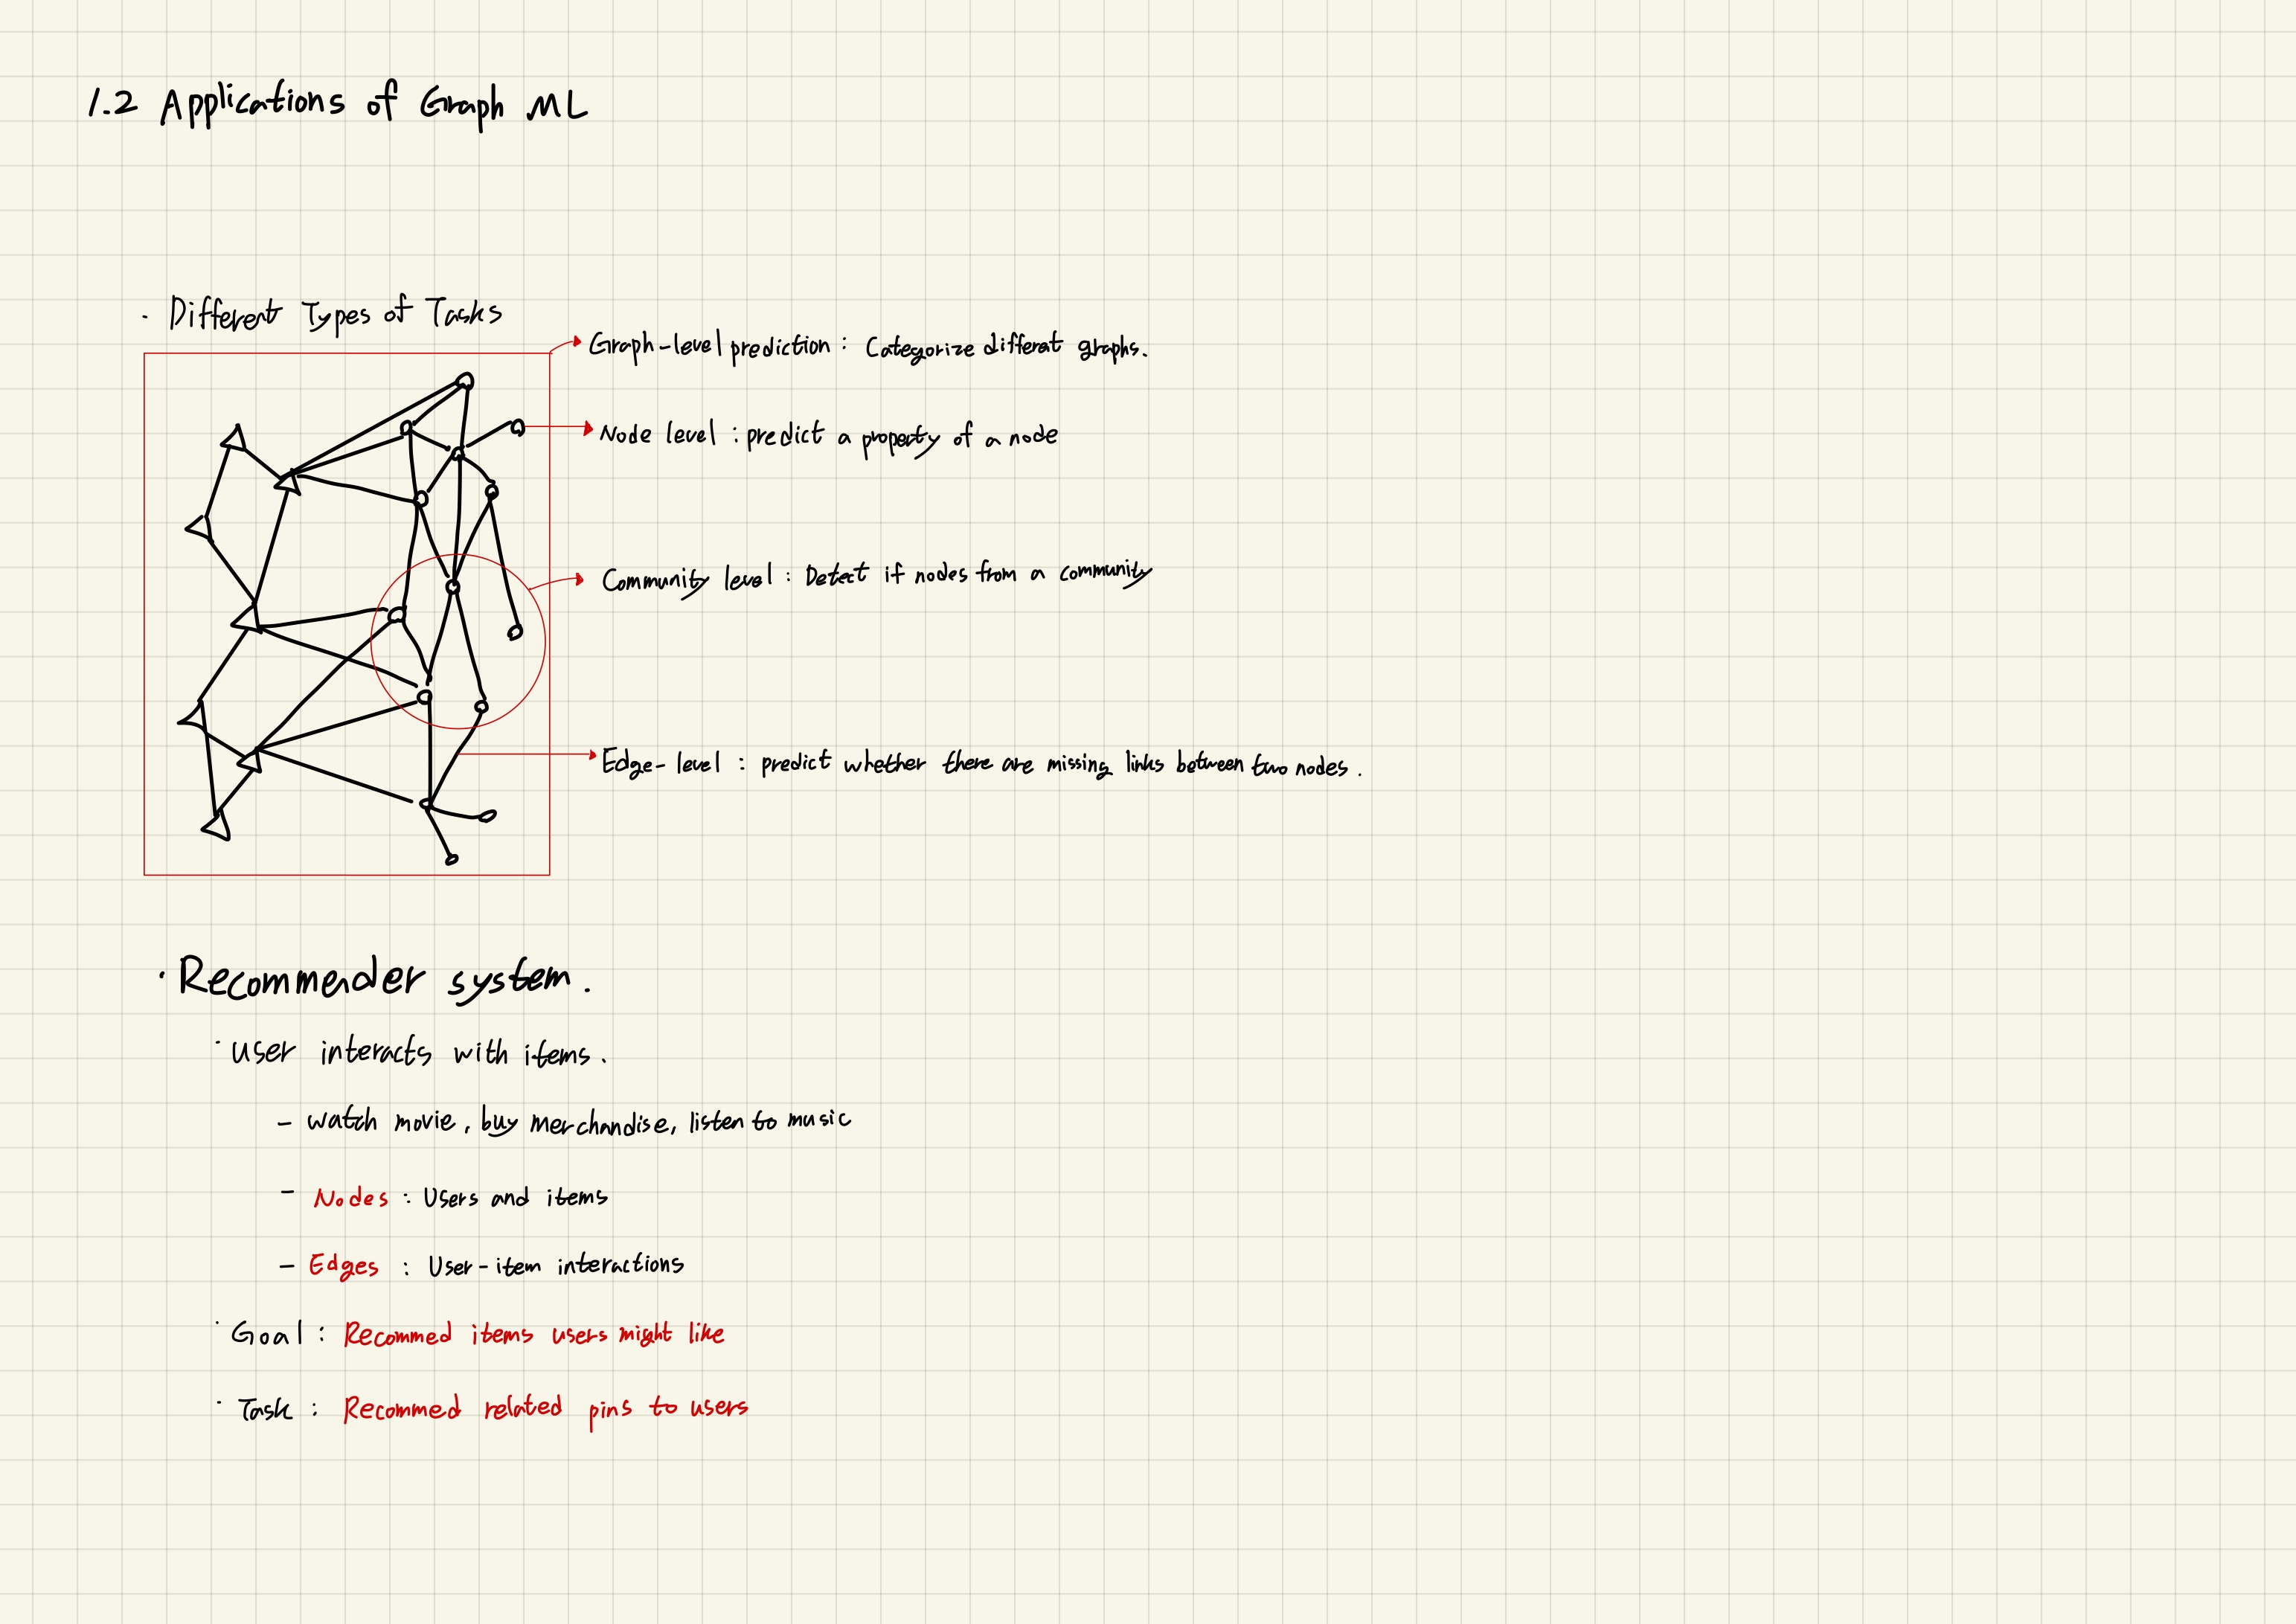 1.2 Applications of Graph ML
· Different Types of Tasks
Graph-level prediction : Categorize differet graphs.
Node level : predict a property of a node
Community level : Detect if nodes from a community
Edge-level : predict whether there are missing links between two nodes.
· Recommender system.
· User interacts with items.
- watch movie, buy merchandise, listen to music
- Nodes : Users and items
- Edges : User-item interactions
· Goal : Recommed items users might like
· Task : Recommed related pins to users